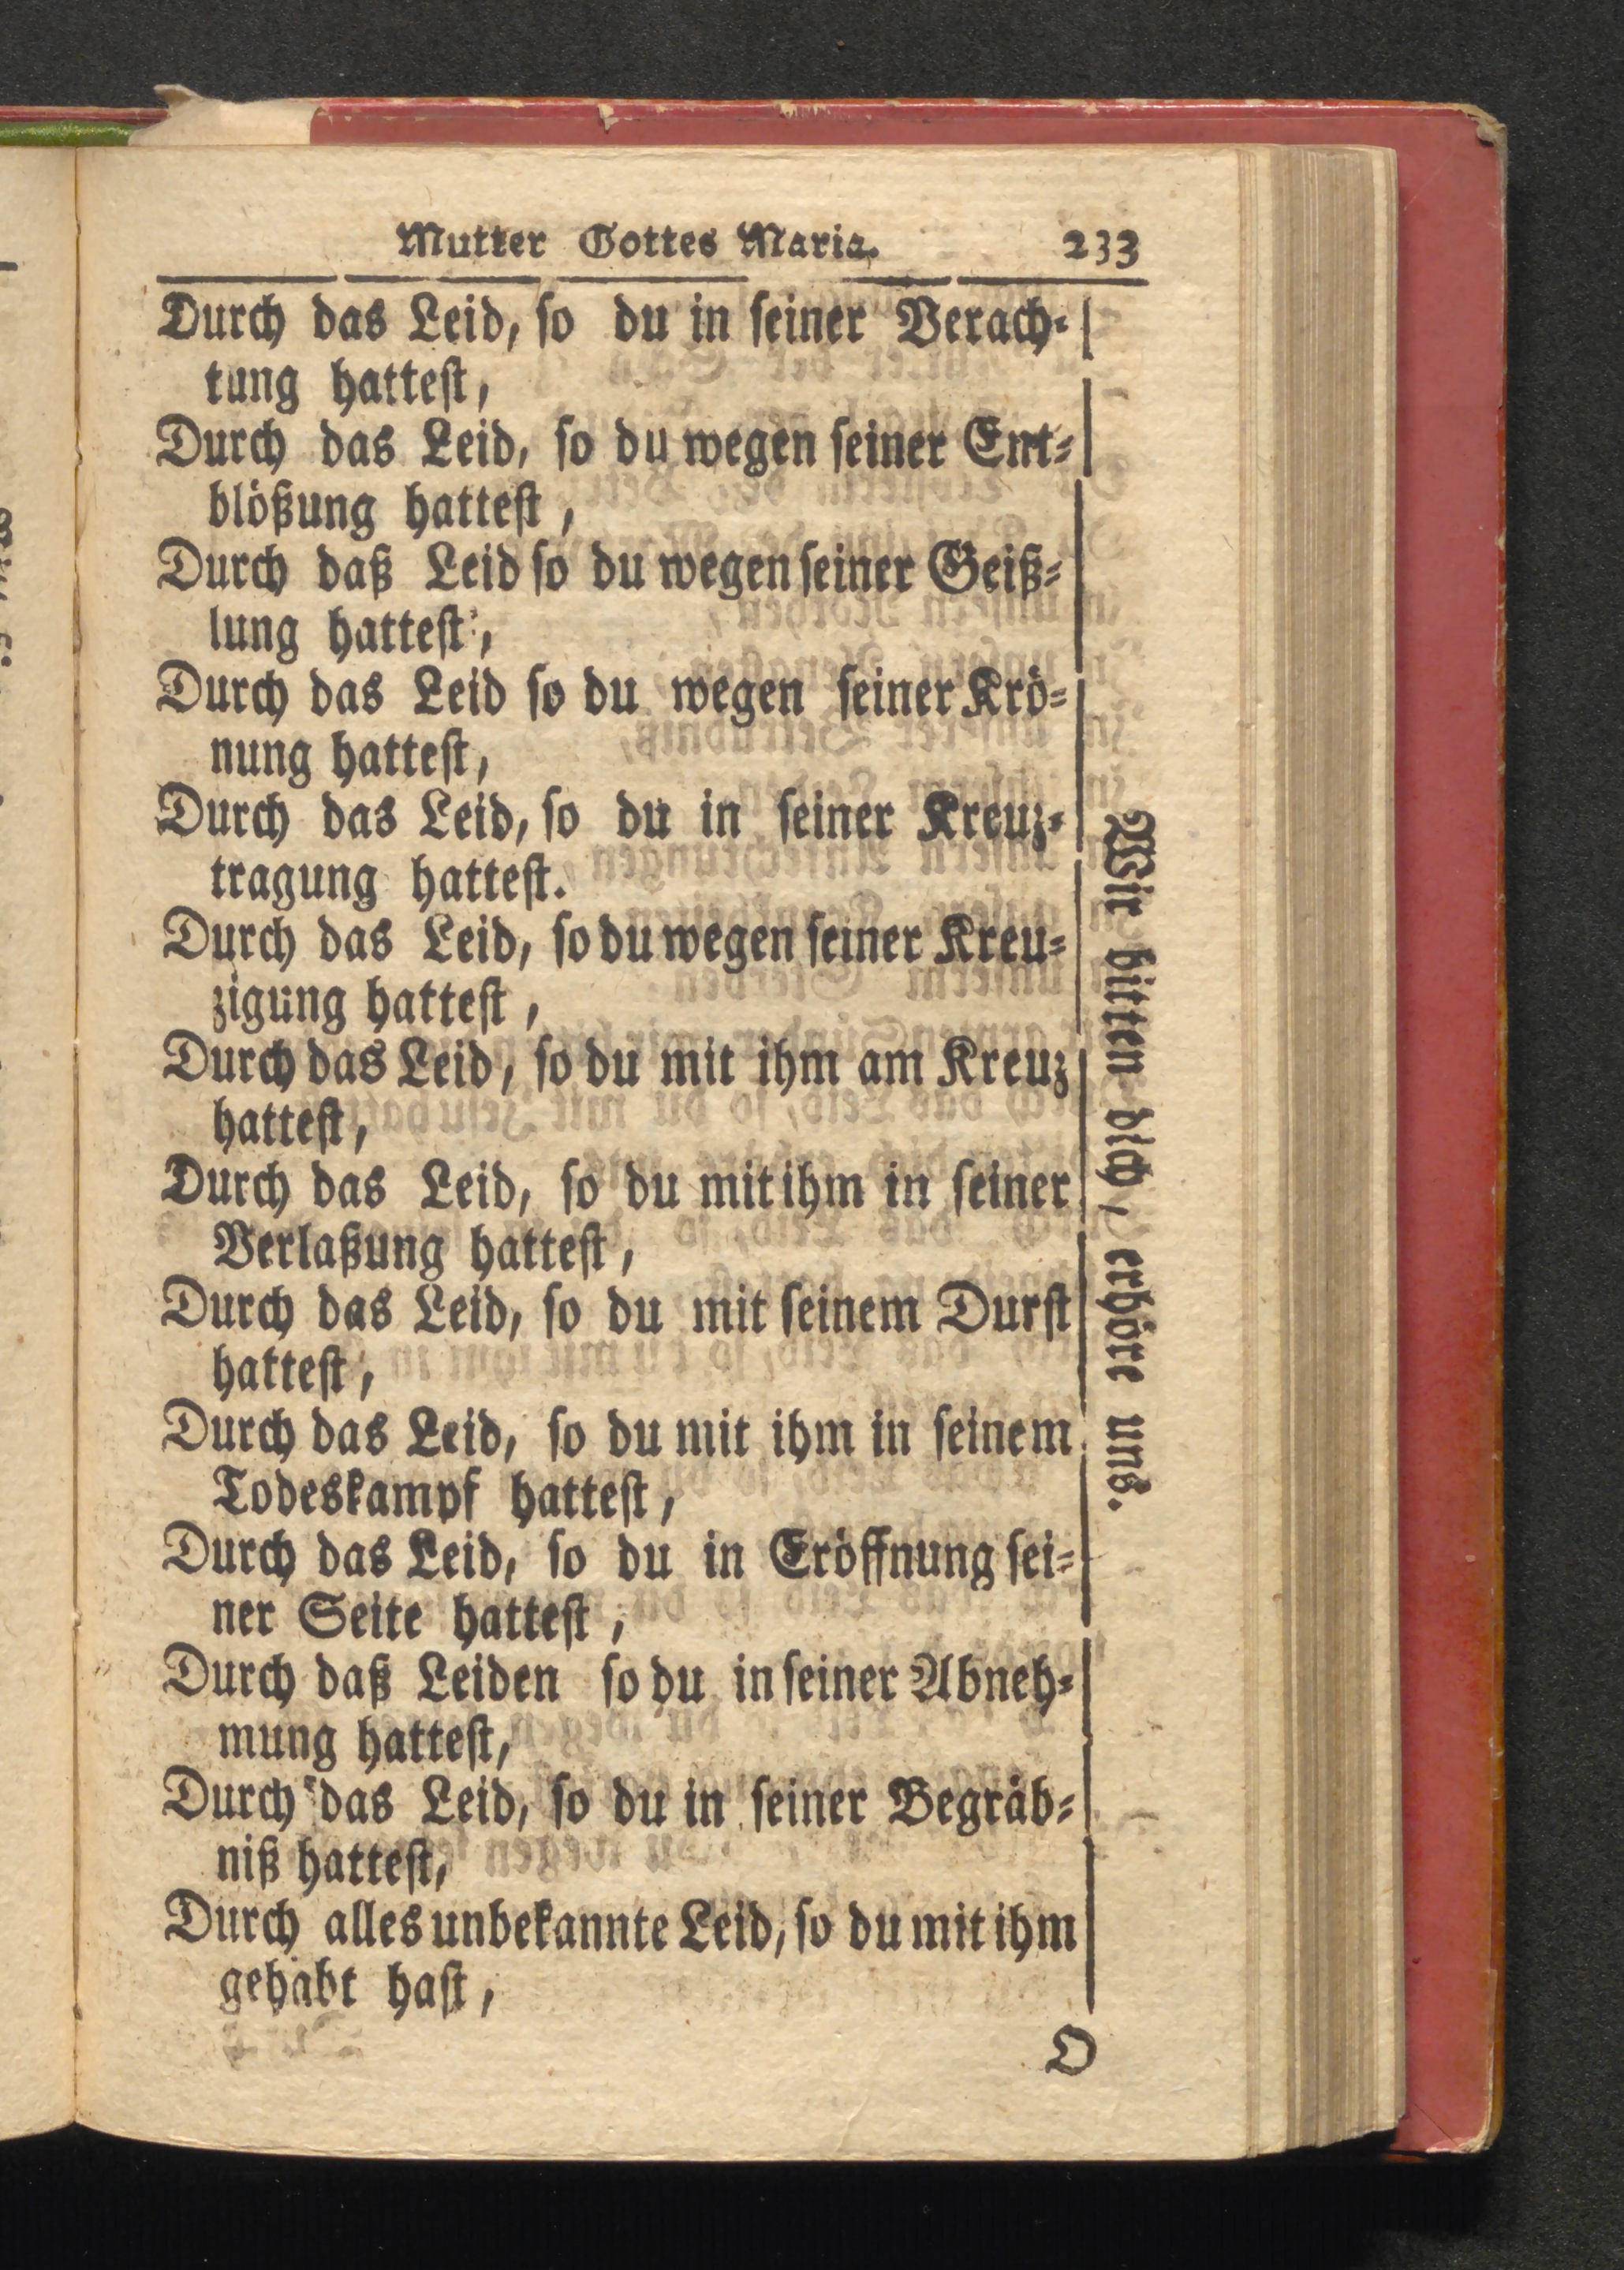 Mutter Gottes Maria. 233
Durch das Leid, ſo du in ſeiner Verach⸗
tung hatteſt,
Durch das Leid, ſo du wegen ſeiner Ent⸗
blößung hatteſt,
Durch daß Leid ſo du wegen ſeiner Geiß⸗
lung hatteſt,
Durch das Leid ſo du wegen ſeiner Krö⸗
nung hatteſt,
Durch das Leid, ſo du in ſeiner Kreuz⸗
tragung hatteſt.
Durch das Leid, ſo du wegen ſeiner Kreu⸗
zigung hatteſt,
Durch das Leid, ſo du mit ihm am Kreuz
hatteſt,
Durch das Leid, ſo du mit ihm in ſeiner
Verlaßung hatteſt,
Durch das Leid, ſo du mit ſeinem Durſt
hatteſt,
Durch das Leid, ſo du mit ihm in ſeinem
Todeskampf hatteſt,
Durch das Leid, ſo du in Eröffnung ſei⸗
ner Seite hatteſt,
Durch daß Leiden ſo du in ſeiner Abneh⸗
mung hatteſt,
Durch das Leid, ſo du in ſeiner Begräb⸗
niß hatteſt,
Durch alles unbekannte Leid, ſo du mit ihm
gehabt haſt,
Wir bitten dich, erhöre uns.
O